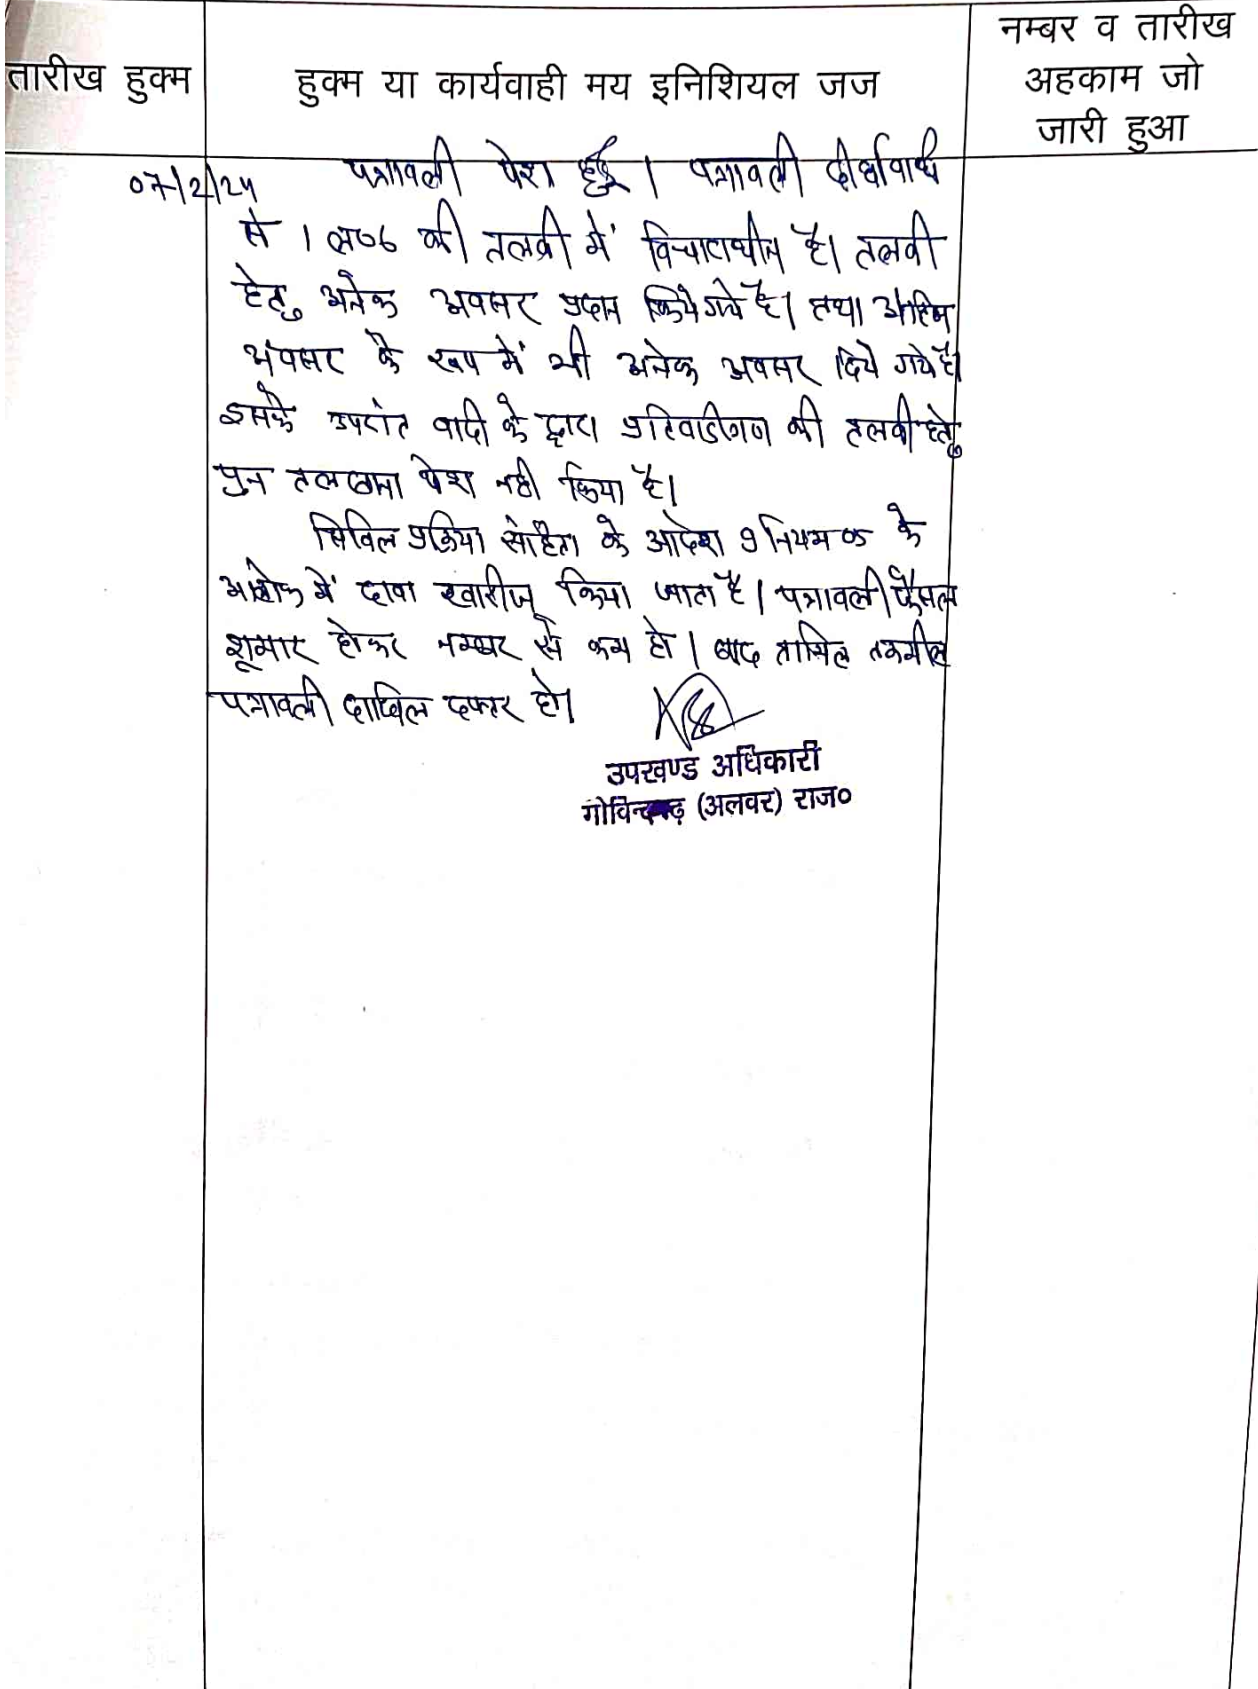 तारीख हुक्म
हुक्म या कार्यवाही मय इनिशियल जज
नम्बर व तारीख
अहकाम जो
जारी हुआ
07/2/24
पत्रावली पेश हुई । पत्रावली दीर्घावधि
से की तलबी में विचाराधीन है। तलवी
हेतु अनेक अवसर प्रदान किये गये है। तथा अंतिम
अवसर के रूप में भी अनेक अवसर दिये गये है।
इसके उपरांत वादी के द्वारा प्रतिवादीगण की तलवी हेतु
पुन तलवाना पेश नही किया है।
सिविल प्रक्रिया संहिता के आदेश 9 नियम 05 के
आलोक में दावा खारीज किया जाता है। पत्रावली फैसल
शूमार होकर नम्बर से कम हो । बाद तामिल तकमील
पत्रावली दाखिल दफ्तर हो।
उपखण्ड अधिकारी
गोविन्दगढ़ (अलवर) राज०